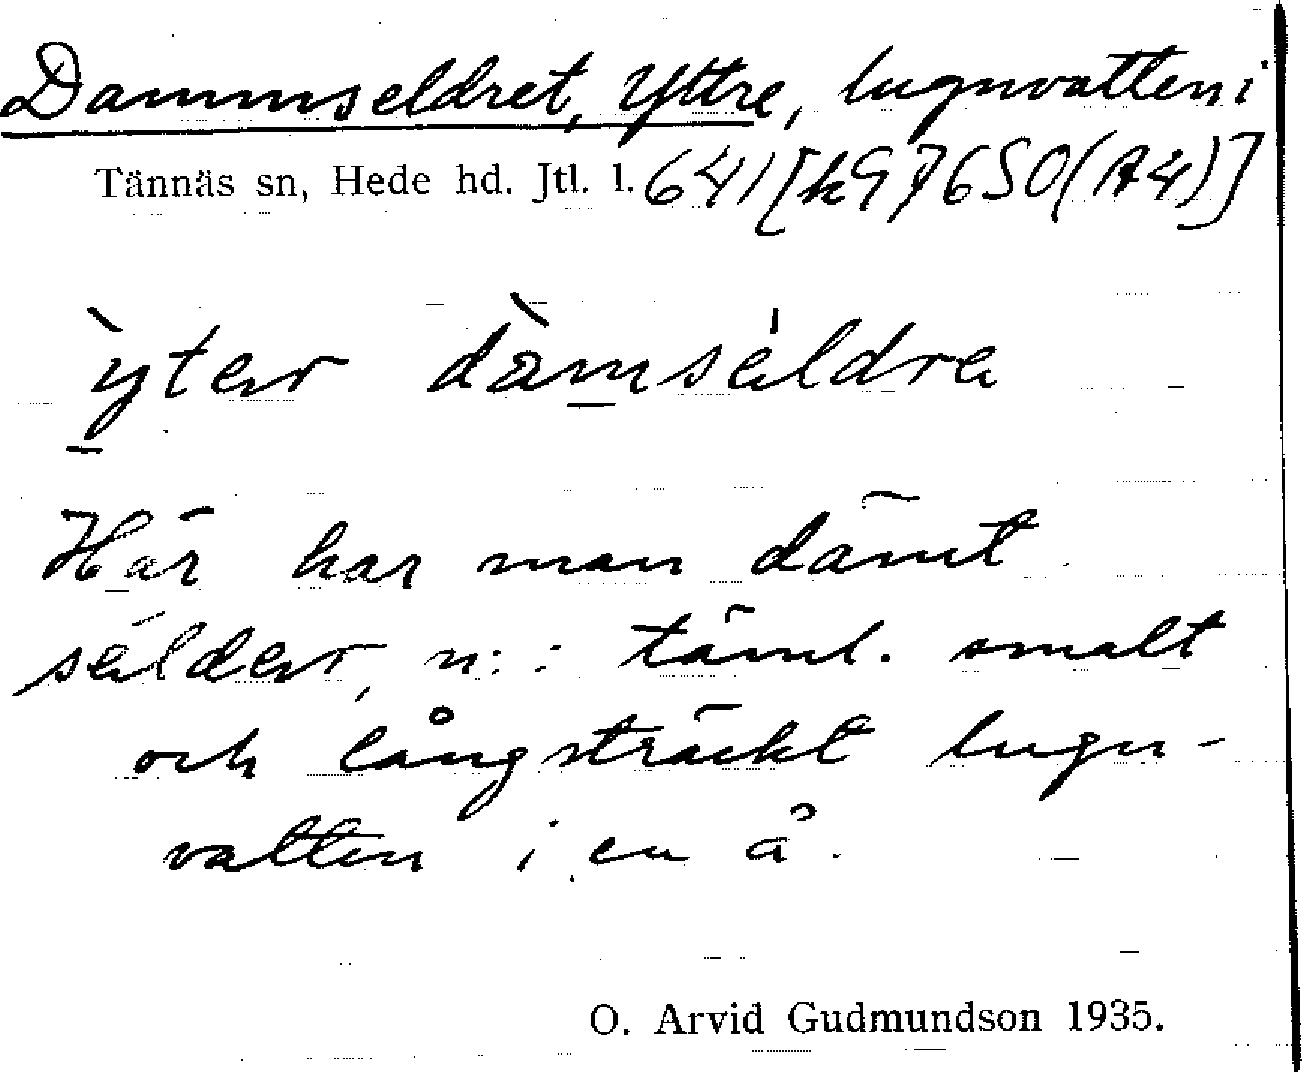 Dammseldret, Yttre, lugnvatten i
Tännäs sn, Hede hd. Jtl. l. 641 [k97650(A4)]
ỳter dàmséldre
Här har man dämt
sélder, n: : täml. smalt
och långsträckt lugn-
vatten i en å.
O. Arvid Gudmundson 1935.